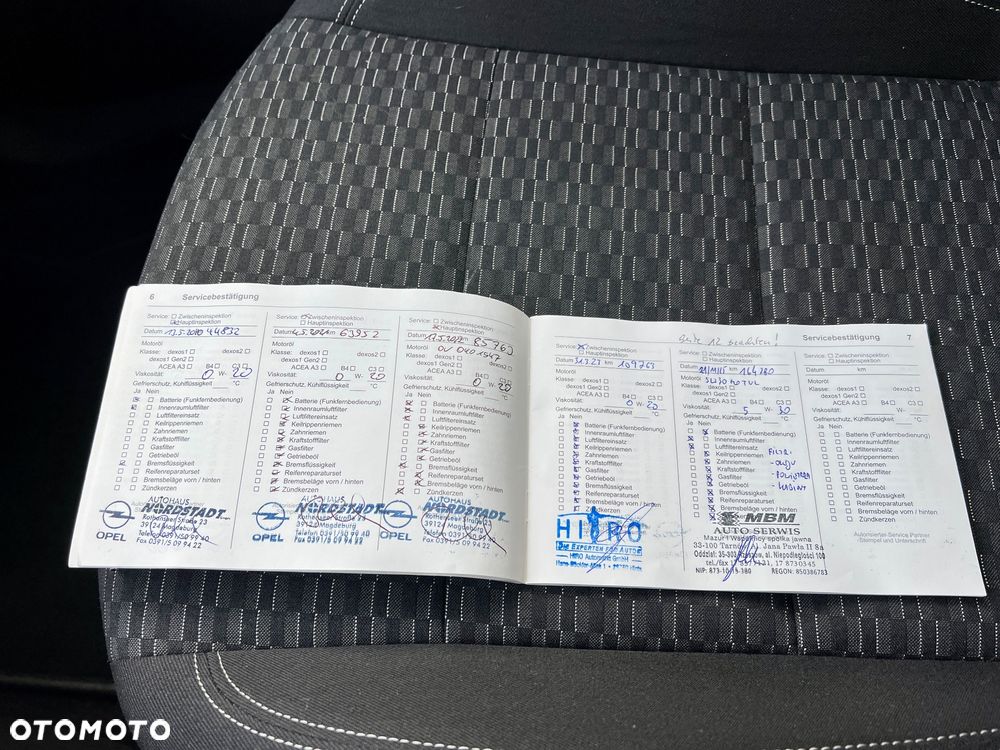 6 Servicebestätigung
Service: Zwischeninspektion
Hauptinspektion
Datum 13.5.2020 44832
Motoröl
Klasse: dexos1 dexos2
dexos1 Gen2
ACEA A3 B4 C3
Viskosität: 0 W- 20
Gefrierschutz, Kühlflüssigkeit °C
Ja Nein
Batterie (Funkfernbedienung)
Innenraumluftfilter
Luftfiltereinsatz
Keilrippenriemen
Zahnriemen
Kraftstofffilter
Gasfilter
Getriebeöl
Bremsflüssigkeit
Reifenreparaturset
Bremsbeläge vorn / hinten
Zündkerzen
AUTOHAUS
NORDSTADT
Rothenseer Straße 23
39124 Magdeburg
Telefon 0391/50 99 40
Fax 0391/5 09 94 22
OPEL
Service: Zwischeninspektion
Hauptinspektion
Datum 4.5.2021 km 63952
Motoröl
Klasse: dexos1 dexos2
dexos1 Gen2
ACEA A3 B4 C3
Viskosität: 0 W- 20
Gefrierschutz, Kühlflüssigkeit °C
Ja Nein
Batterie (Funkfernbedienung)
Innenraumluftfilter
Luftfiltereinsatz
Keilrippenriemen
Zahnriemen
Kraftstofffilter
Gasfilter
Getriebeöl
Bremsflüssigkeit
Reifenreparaturset
Bremsbeläge vorn / hinten
Zündkerzen
AUTOHAUS
NORDSTADT
Rothenseer Straße 23
39124 Magdeburg
Telefon 0391/50 99 40
Fax 0391/5 09 94 22
OPEL
Service: Zwischeninspektion
Hauptinspektion
Datum km 85763
Motoröl OV 040 1547
Klasse: dexos1 dexos2
dexos1 Gen2
ACEA A3 B4 C3
Viskosität: 0 W- 20
Gefrierschutz, Kühlflüssigkeit °C
Ja Nein
Batterie (Funkfernbedienung)
Innenraumluftfilter
Luftfiltereinsatz
Keilrippenriemen
Zahnriemen
Kraftstofffilter
Gasfilter
Getriebeöl
Bremsflüssigkeit
Reifenreparaturset
Bremsbeläge vorn / hinten
Zündkerzen
AUTOHAUS
NORDSTADT
Rothenseer Straße 23
39124 Magdeburg
Telefon 0391/50 99 40
Fax 0391/5 09 94 22
OPEL
Servicebestätigung 7
Service: Zwischeninspektion
Hauptinspektion
Datum 31.3.23 km 109763
Motoröl
Klasse: dexos1 dexos2
dexos1 Gen2
ACEA A3 B4 C3
Viskosität: 0 W- 20
Gefrierschutz, Kühlflüssigkeit °C
Ja Nein
Batterie (Funkfernbedienung)
Innenraumluftfilter
Luftfiltereinsatz
Keilrippenriemen
Zahnriemen
Kraftstofffilter
Gasfilter
Getriebeöl
Bremsflüssigkeit
Reifenreparaturset
Bremsbeläge vorn / hinten
Zündkerzen
HIRO
DIE EXPERTEN FÜR AUTOS
HIRO Automarkt GmbH
Service: Zwischeninspektion
Hauptinspektion
Datum km 144280
Motoröl 5W30 MOTUL
Klasse: dexos1 dexos2
dexos1 Gen2
ACEA A3 B4 C3
Viskosität: 5 W- 30
Gefrierschutz, Kühlflüssigkeit °C
Ja Nein
Batterie (Funkfernbedienung)
Innenraumluftfilter
Luftfiltereinsatz
Keilrippenriemen
Zahnriemen
Kraftstofffilter
Gasfilter
Getriebeöl
Bremsflüssigkeit
Reifenreparaturset
Bremsbeläge vorn / hinten
FILTR:
- OLEJU
- POWIETRZA
- KABINY
MBM
AUTO SERWIS
Mazur i Wspólnicy spółka jawna
33-100 Tarnów, Jana Pawła II 8a
Oddział: 35-303 Rzeszów, al. Niepodległości 100
tel./fax 17 8573121, 17 8730345
REGON: 850386783
Service: Zwischeninspektion
Hauptinspektion
Datum km
Motoröl
Klasse: dexos1 dexos2
dexos1 Gen2
ACEA A3 B4 C3
Viskosität: W-
Gefrierschutz, Kühlflüssigkeit °C
Ja Nein
Batterie (Funkfernbedienung)
Innenraumluftfilter
Luftfiltereinsatz
Keilrippenriemen
Zahnriemen
Kraftstofffilter
Gasfilter
Getriebeöl
Bremsflüssigkeit
Reifenreparaturset
Bremsbeläge vorn / hinten
Zündkerzen
Autorisierter Service Partner
Stempel und Unterschrift
OTOMOTO